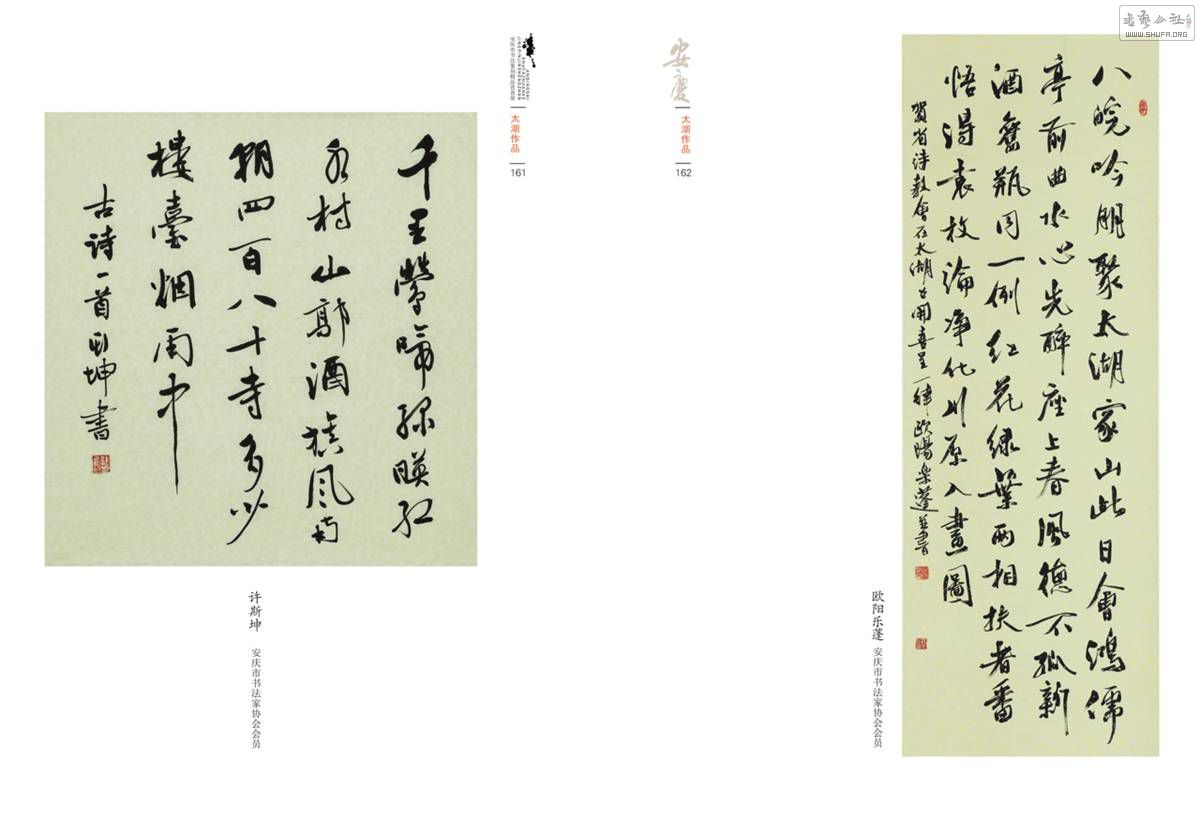 千里鶯啼绿暎红
水村山郭酒旗风南
朝四百八十寺多少
樓臺烟雨中
古诗一首 斯坤書
许斯坤 安庆市书法家协会会员
安庆市书法篆刻精品晋京展
太湖作品
161
安慶
太湖作品
162
八皖吟朋聚太湖家山此日會鴻儒
亭前曲水心先醉座上春風德不孤新
酒舊瓶同一例红花绿葉两相扶者番
悟得袁枚論净化川原入畫圖
賀省诗教會在太湖召開喜呈一律歐陽樂蓬並書
欧阳乐蓬 安庆市书法家协会会员
书艺公社
WWW.SHUFA.ORG